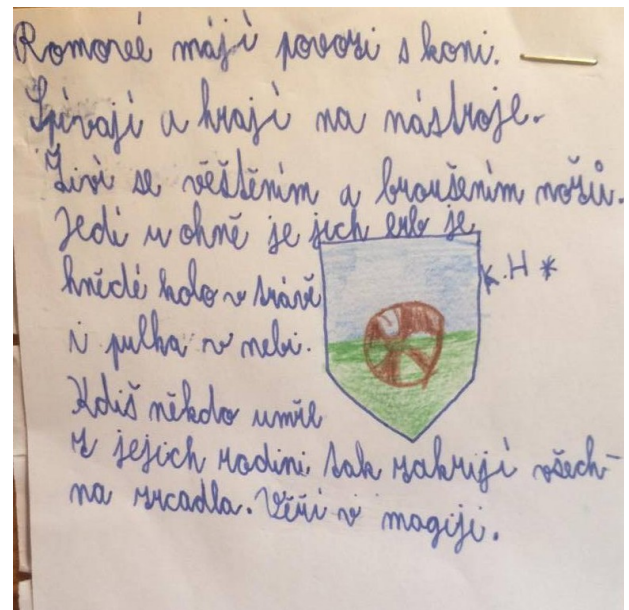 Romoreé májí povozi s koni.
Spívají a hrají na nástroje.
Živí se věštěním a broušením nožů.
Jedí u ohně je jich erb je
hnědé kolo v trávě
i pulka v nebi.
K.H *
Kdiš někdo umře
z jejich rodini tak zakrijí všech-
na zrcadla. Věří v magiji.